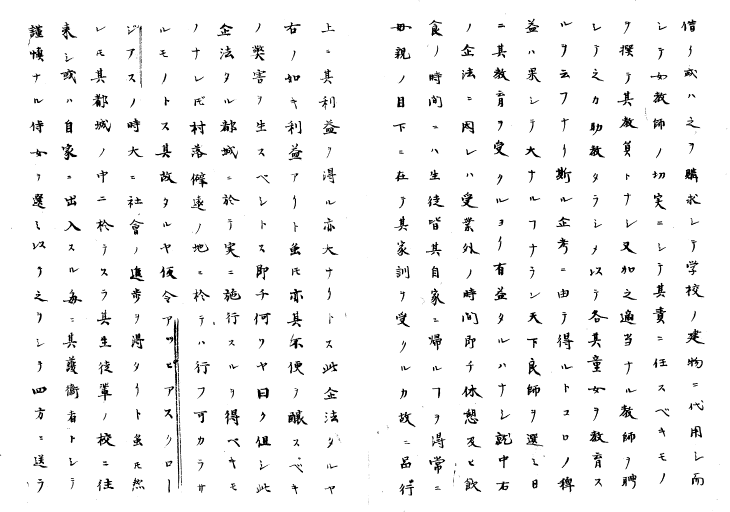 借リ或ハ之ヲ購求シテ学校ノ建物ニ代用シ而
シテ女教師ノ切実ニシテ其責ニ任スベキモノ
ヲ撰テ其教員トナシ又加之適当ナル教師ヲ聘
シテ之カ助教タラシメ以テ各其童女ヲ教育ス
ルヲ云フナリ斯ル企考ニ由テ得ルトコロノ稗
益ハ果シテ大ナルヿナラン天下良師ヲ選ミ日
ニ其教育ヲ受クルヨリ有益タルハナシ就中右
ノ企法ニ因レハ受業外ノ時間即チ休憩及ヒ飲
食ノ時間ニハ生徒皆其自家ニ帰ルヿヲ得常ニ
母親ノ目下ニ在テ其家訓ヲ受クルカ故ニ品行
上ニ其利益ヲ得ル亦大ナリトス此企法タルヤ
右ノ如キ利益アリト虽モ亦其不便ヲ醸スベキ
ノ弊害ヲ生スベシトス即チ何ヲヤ曰ク但シ此
企法タル都城ニ於テ実ニ施行スルヲ得ベキモ
ノナレ𪜈村落僻遠ノ地ニ於テハ行フ可カラサ
ルモノトス其故タルヤ仮令アッピアスクロー
ジアスノ時大ニ社會ノ進歩ヲ得タリト虽𪜈然
レ𪜈其都城ノ中ニ於テスラ其生徒輩ノ校ニ往
来シ或ハ自家ニ出入スル毎ニ其護衛者トシテ
謹慎ナル侍女ヲ選ミ以テ之ヲシテ四方ニ送ラ